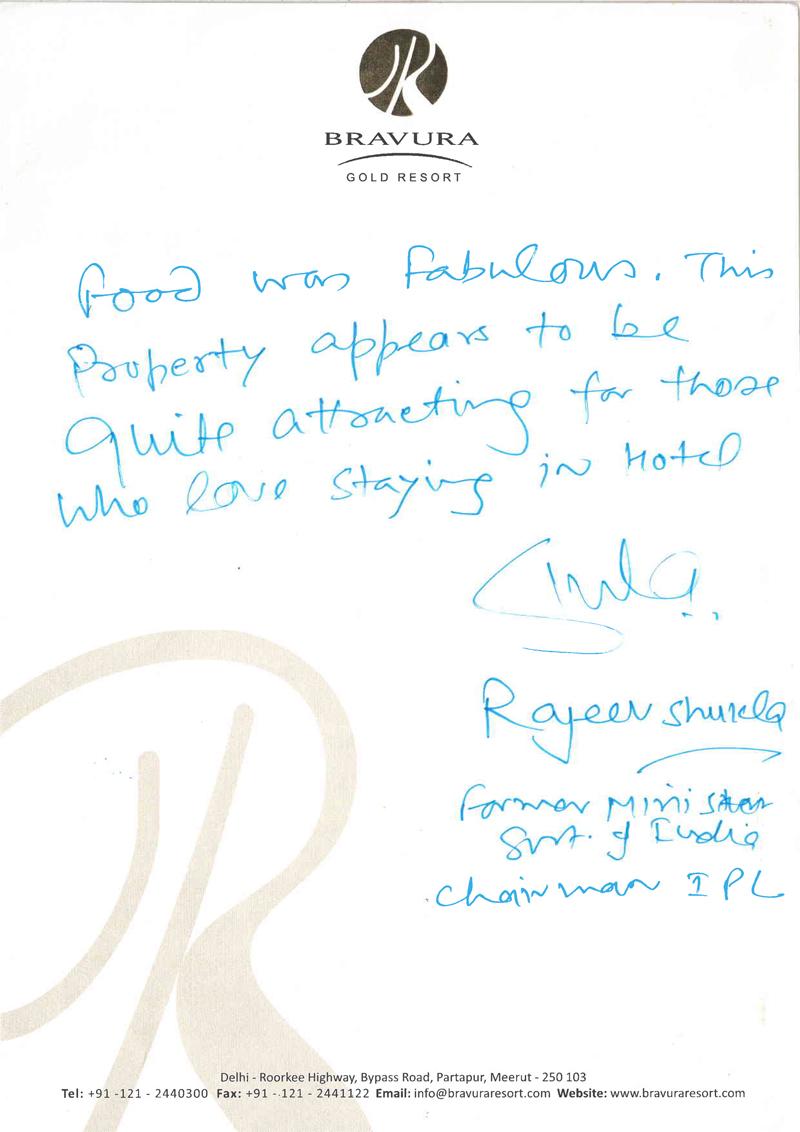 BRAVURA
GOLD RESORT
Food was fabulous. This
Property appears to be
quite attracting for those
who love staying in Hotel
Shukla
Rajeev Shukla
Former Minister
Govt. of India
Chairman IPL
Delhi - Roorkee Highway, Bypass Road, Partapur, Meerut - 250 103
Tel: +91 -121 - 2440300 Fax: +91 -.121 - 2441122 Email: info@bravuraresort.com Website: www.bravuraresort.com